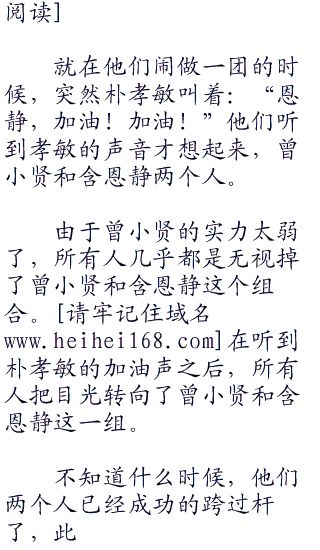 阅读]
就在他们闹做一团的时
候，突然朴孝敏叫着：“恩
静，加油！加油！”他们听
到孝敏的声音才想起来，曾
小贤和含恩静两个人。
由于曾小贤的实力太弱
了，所有人几乎都是无视掉
了曾小贤和含恩静这个组
合。[请牢记住域名
www.heihei168.com]在听到
朴孝敏的加油声之后，所有
人把目光转向了曾小贤和含
恩静这一组。
不知道什么时候，他们
两个人已经成功的跨过杆
了，此